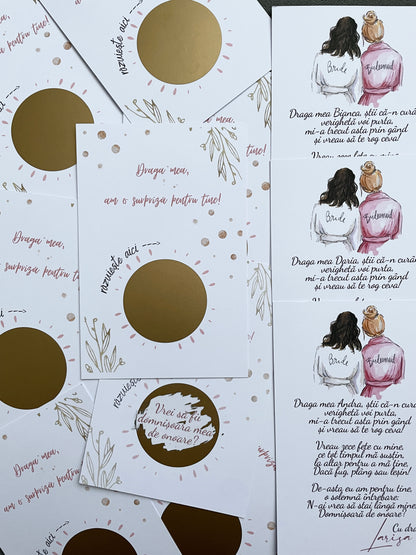 răzuiește aici
pentru tine!
Draga mea,
am o surpriză pentru tine!
răzuiește aici
Draga mea,
surpriză pentru tine!
răzuiește
Vrei să fii
domnișoara mea
de onoare?
Draga mea,
o surpriză pentru tine!
mea,
tine!
Bride
Bridesmaid
Draga mea Bianca, știi că-n curân
verighetă voi purta,
mi-a trecut asta prin gând
și vreau să te rog ceva!
Vreau zece fete cu mine
Bride
Bridesmaid
Draga mea Daria, știi că-n curân
verighetă voi purta,
mi-a trecut asta prin gând
și vreau să te rog ceva!
Bride
Bridesmaid
Draga mea Andra, știi că-n curân
verighetă voi purta,
mi-a trecut asta prin gând
și vreau să te rog ceva!
Vreau zece fete cu mine,
ce tot timpul mă susțin,
la altar pentru a mă ține,
Dacă fug, plâng sau leșin!
De-asta eu am pentru tine,
o solemnă întrebare:
N-ai vrea să stai lângă mine,
Domnișoară de onoare?
Cu dra
Lariza